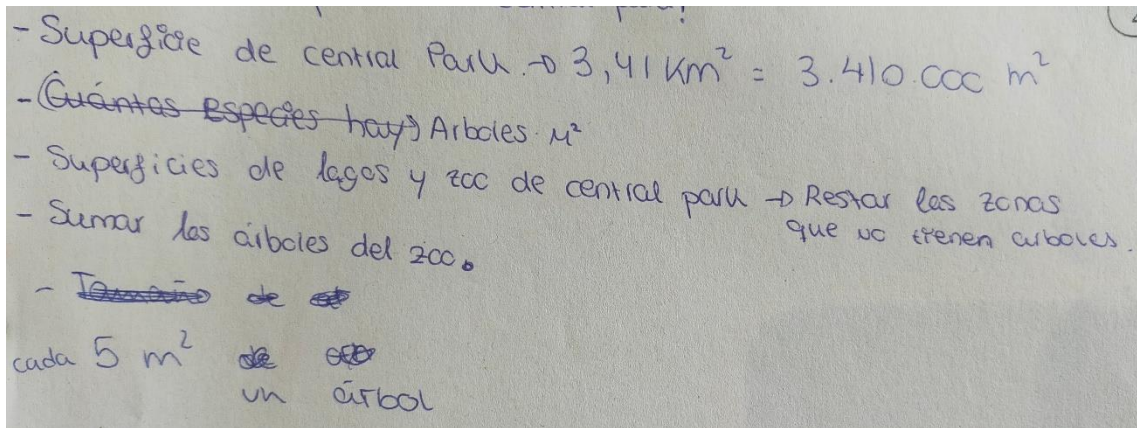 - Superficie de central Park. → 3,41 Km² = 3.410.000 m²
- Cuántas especies hay Arboles. M²
- Superficies de lagos y zoo de central park → Restar las zonas
que no tienen arboles.
- Sumar los árboles del zoo.
- Tamaño de
cada 5 m² de
un árbol